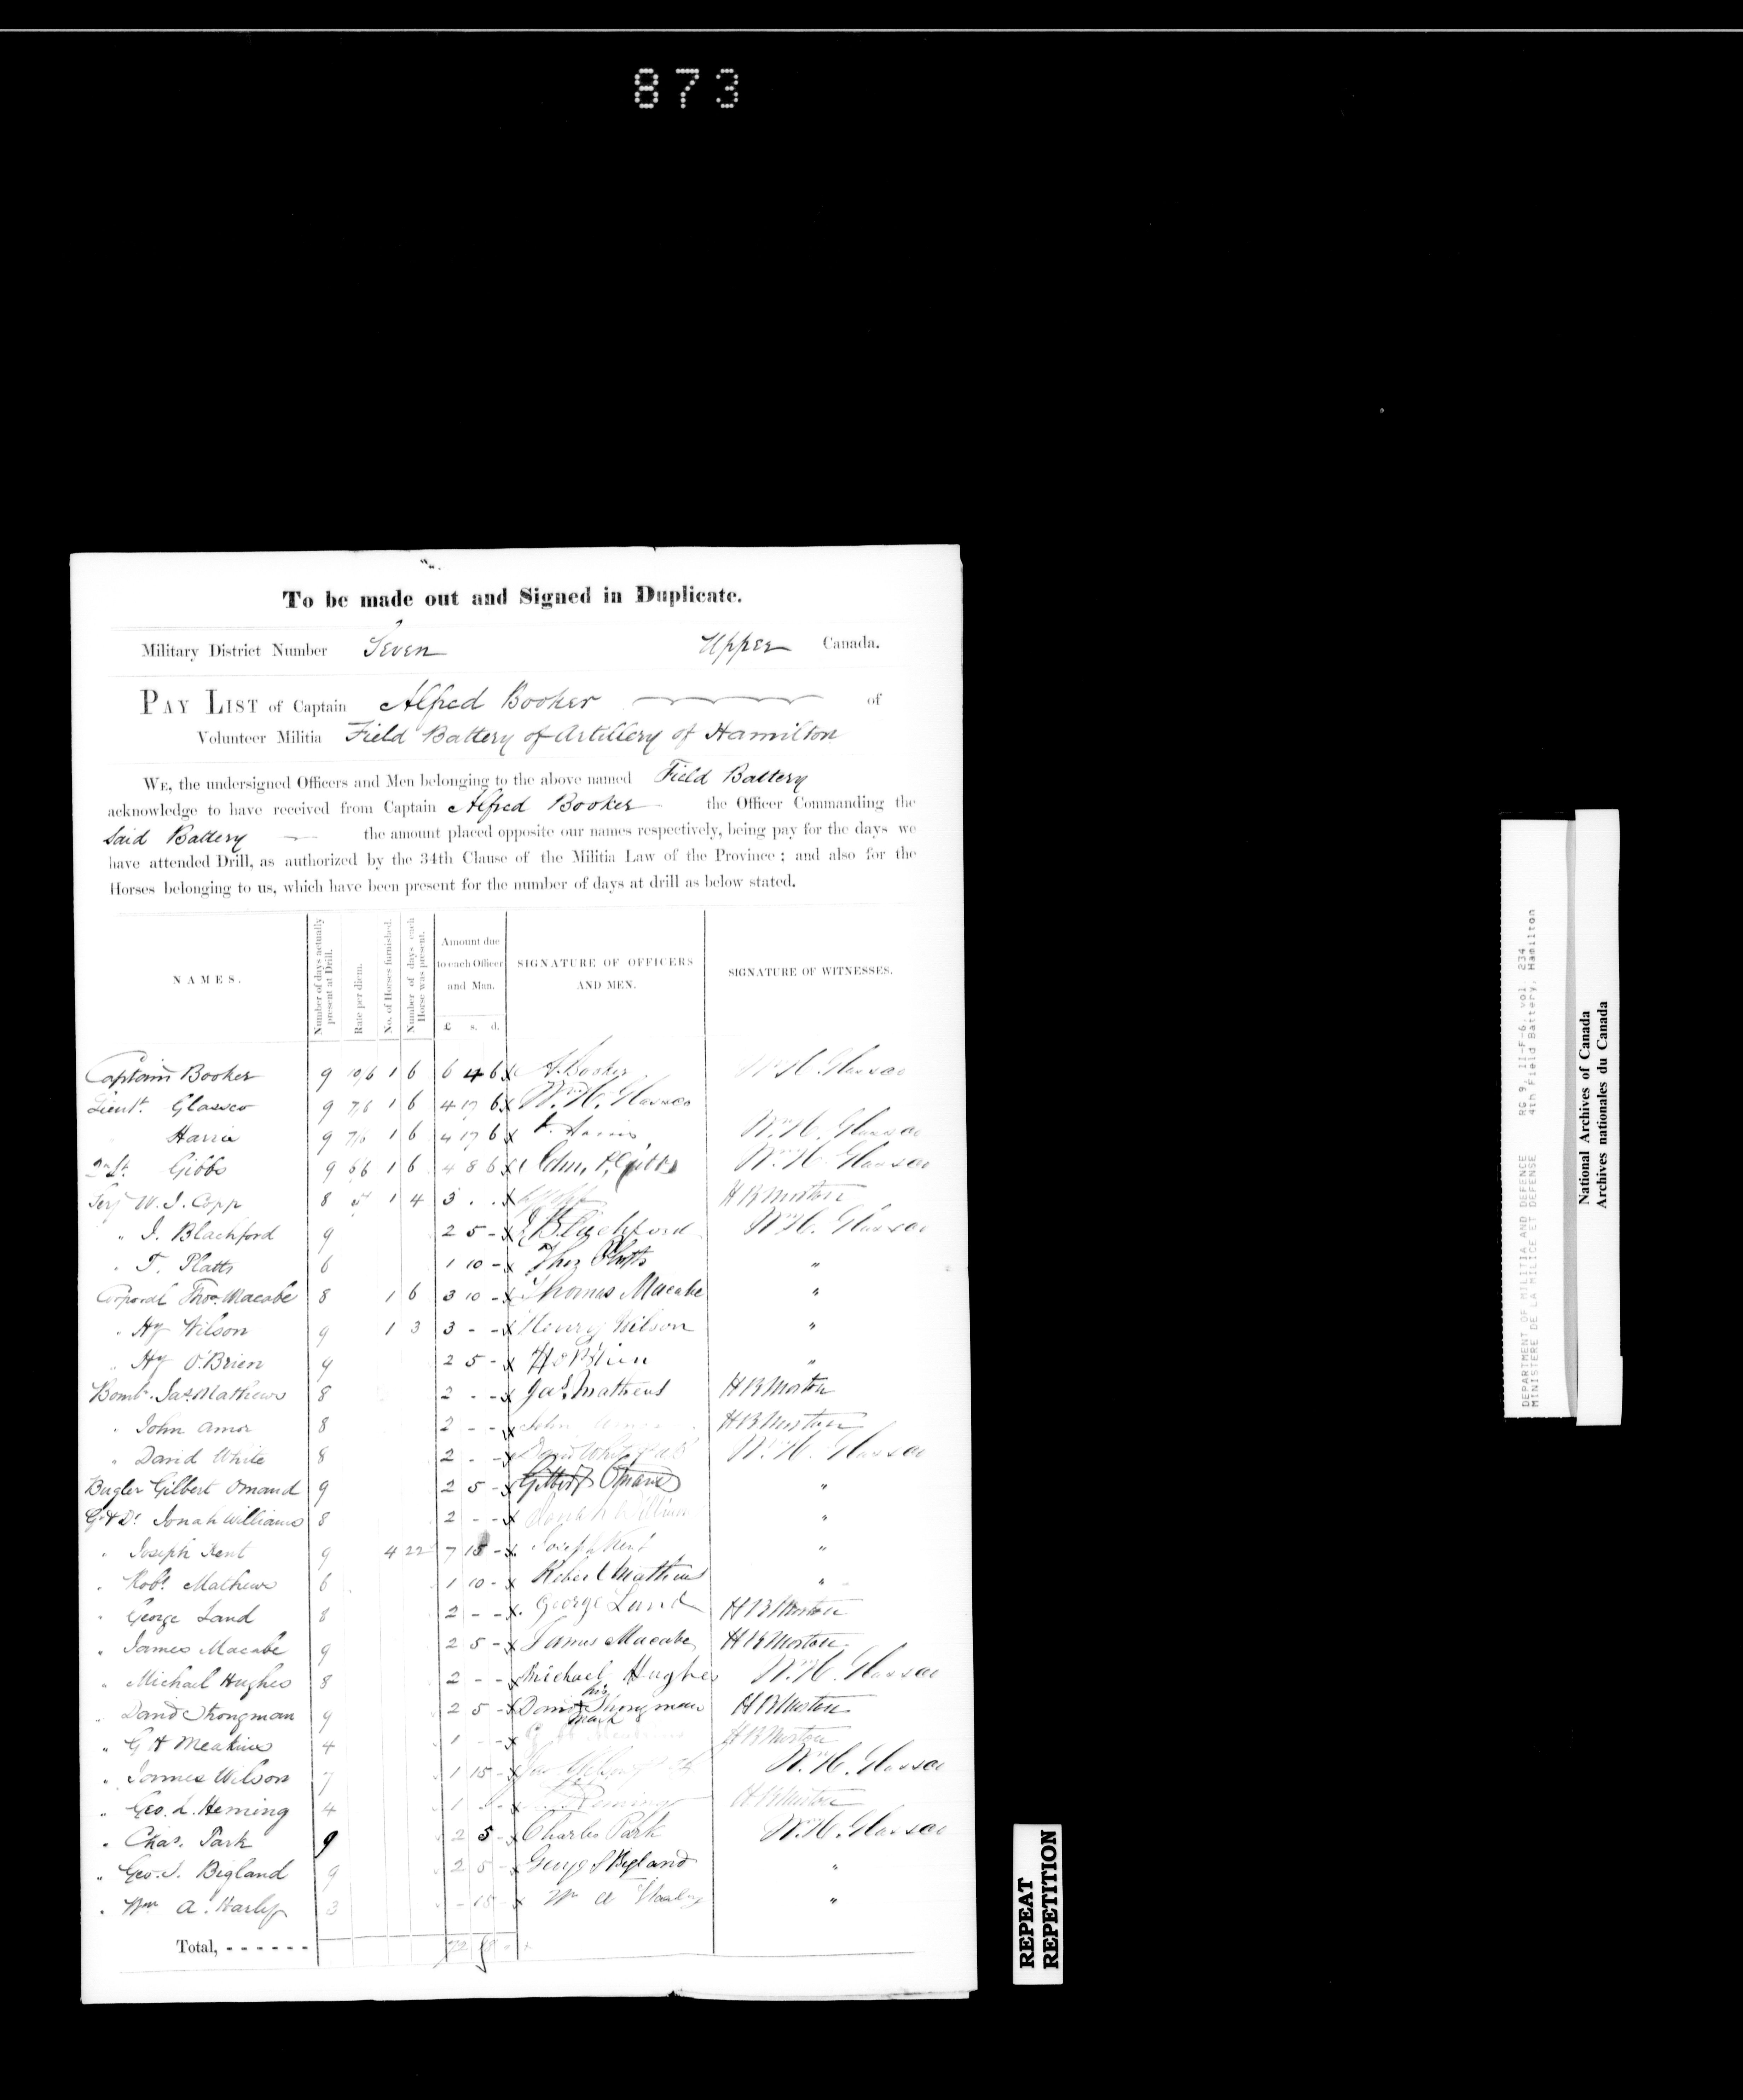 873
To be made out and Signed in Duplicate.
Military District Number Seven Upper Canada.
PAY LIST of Captain Alfred Booker of
Volunteer Militia Field Battery of Artillery of Hamilton
WE, the undersigned Officers and Men belonging to the above named Field Battery
acknowledge to have received from Captain Alfred Booker the Officer Commanding the
Said Battery the amount placed opposite our names respectively, being pay for the days we
have attended Drill, as authorized by the 34th Clause of the Militia Law of the Province; and also for the
Horses belonging to us, which have been present for the number of days at drill as below stated.
NAMES. Number of days actually present at Drill. Rate per diem. No. of Horses furnished. Number of days each Horse was present. Amount due to each Officer and Man. SIGNATURE OF OFFICERS AND MEN. SIGNATURE OF WITNESSES.
£ s. d.
Captain Booker 9 10/6 1 6 6 4 6 x A. Booker Wm H. Glassco
Lieut. Glassco 9 7/6 1 6 4 17 6 x Wm H. Glassco
Harris 9 7/6 1 6 4 17 6 x Harris Wm H. Glassco
2nd Lt. Gibbs 9 6/6 1 6 4 8 6 x Gibbs Wm H. Glassco
Serj W. J. Copp 8 5/ 1 4 3 . . x H B Morton
" J. Blachford 9 2 5 - x Blachford Wm H. Glassco
" T. Platts 6 1 10 - x Thos Platts "
Corporal Thos. Macabe 8 1 6 3 10 - x Thomas Macabe "
" Hy Wilson 9 1 3 3 - - x Henry Wilson "
" Hy O'Brien 9 2 5 - x H O'Brien "
Bomb. Jas. Mathews 8 2 - - x Jas. Mathews H B Morton
" John Amor 8 2 - - x John H B Morton
" David White 8 2 . - x David White Wm H. Glassco
Bugler Gilbert Omand 9 2 5 - x Gilbert Omand "
G & Dr Jonah Williams 8 2 - - x Jonah Williams "
" Joseph Kent 9 4 22 7 15 - x Joseph Kent "
" Robt. Mathews 6 1 10 - x Robert Mathews "
" George Land 8 2 - - x George Land H B Morton
" James Macabe 9 2 5 - x James Macabe H B Morton
" Michael Hughes 8 2 - - x Michael Hughes Wm H. Glassco
" David Strongman 9 2 5 - x David his x mark Strongman H B Morton
" G H Meakins 4 1 - - x H B Morton
" James Wilson 7 1 15 - x Wm H. Glassco
" Geo. L. Heming 4 1 - - x Heming H B Morton
" Chas. Park 9 2 5 - x Charles Park Wm H. Glassco
" Geo. S. Bigland 9 2 5 - x George S Bigland "
" Wm A. Harley 3 - 15 - x Wm A Harley "
Total, - - - - - - 72
REPEAT
REPETITION
DEPARTMENT OF MILITIA AND DEFENCE RG 9, II-F-6, vol 234
MINISTERE DE LA MILICE ET DEFENSE 4th Field Battery, Hamilton
National Archives of Canada
Archives nationales du Canada